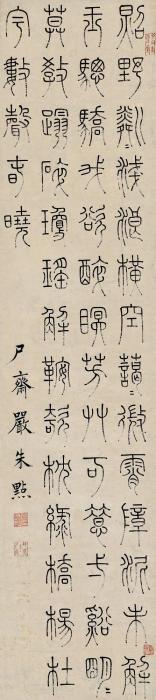 照野瀰瀰淺浪橫空藹藹微霄障泥未解
玉驄驕我欲醉眠芳艸可惜弌谿明
莫教蹋破瓊瑤解鞍欹枕綠橋楊杜
宇數聲春曉
尸齋嚴朱點